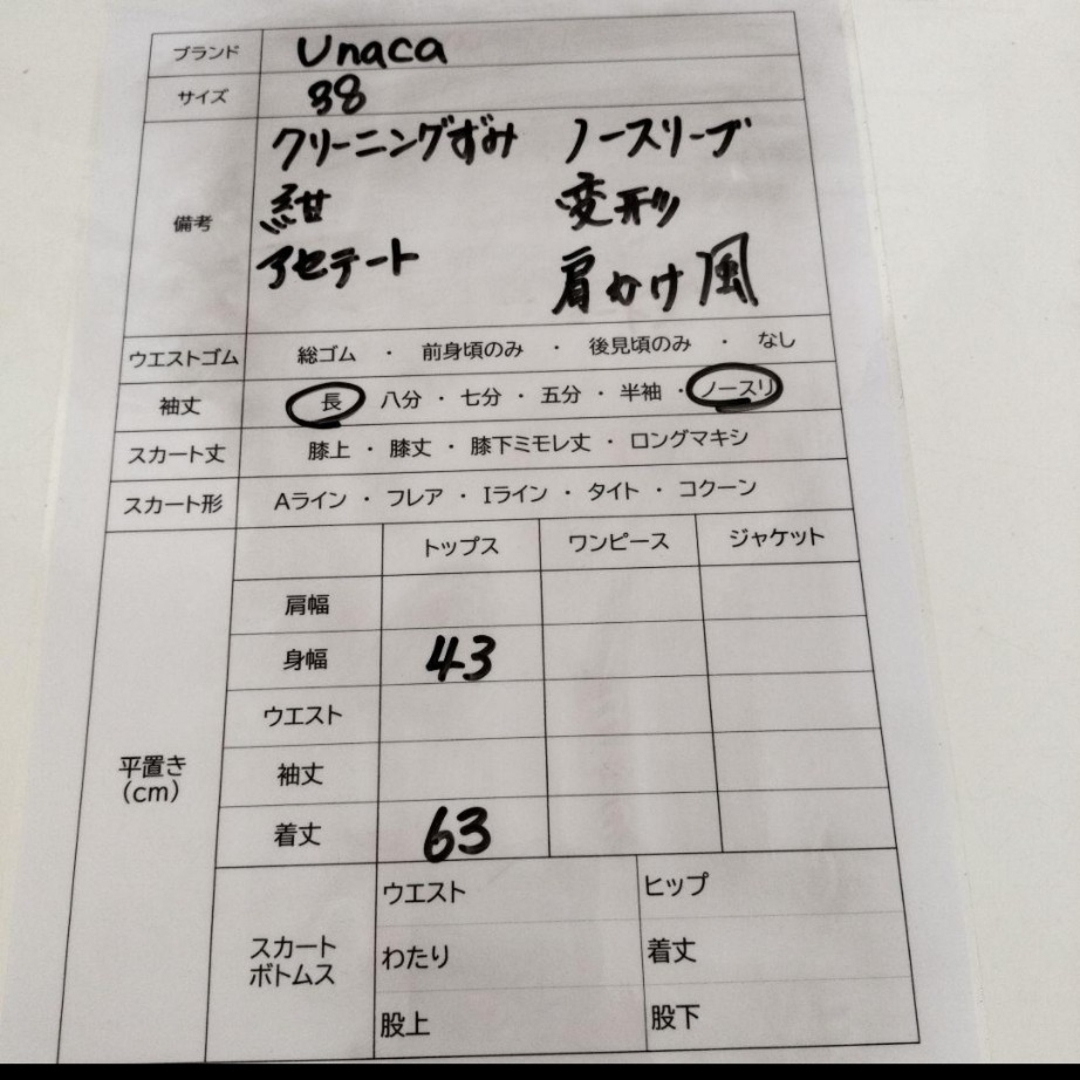 ブランド Unaca
サイズ 38
備考
クリーニングずみ ノースリーブ
紺 変形
アセテート 肩かけ風
ウエストゴム 総ゴム ・ 前身頃のみ ・ 後見頃のみ ・ なし
袖丈 長 八分 ・ 七分 ・ 五分 ・ 半袖 ・ ノースリ
スカート丈 膝上 ・ 膝丈 ・ 膝下ミモレ丈 ・ ロングマキシ
スカート形 Aライン ・ フレア ・ Iライン ・ タイト ・ コクーン
平置き
(cm)
トップス ワンピース ジャケット
肩幅
身幅 43
ウエスト
袖丈
着丈 63
スカート
ボトムス
ウエスト ヒップ
わたり 着丈
股上 股下